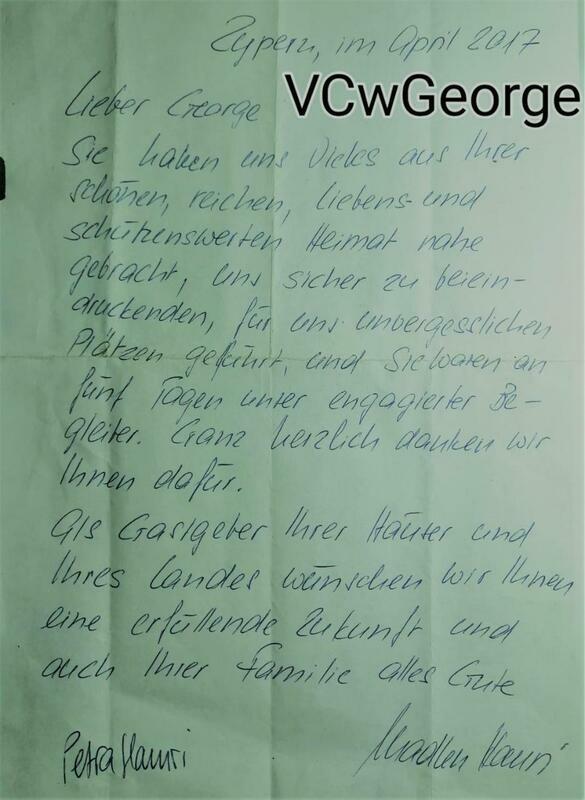 Zypern, im April 2017
VCwGeorge
Lieber George
Sie haben uns Vieles aus Ihrer
schönen, reichen, liebens- und
schützenswerten Heimat nahe
gebracht, uns sicher zu beiein-
druckenden, für uns unvergesslichen
Plätzen geführt, und Sie waren an
fünf Tagen unser engagierter Be-
gleiter. Ganz herzlich danken wir
Ihnen dafür.
Als Gastgeber Ihrer Häuser und
Ihres Landes wünschen wir Ihnen
eine erfüllende Zukunft und
auch Ihrer Familie alles Gute
Petra Hauri
Madlen Hauri